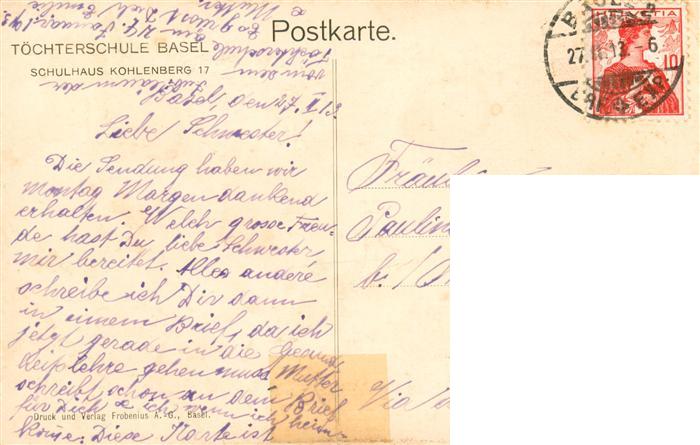 Postkarte.
TÖCHTERSCHULE BASEL
SCHULHAUS KOHLENBERG 17
HELVETIA
10
BASEL 2
27.II.13.-6
Basel, den 27. II 13.
Liebe Schwester!
Die Sendung haben wir
Montag Morgen dankend
erhalten. Welch grosse Freu-
de hast Du, liebe Schwester,
mir bereitet. Alles andere
schreibe ich Dir dann
in einem Brief, da ich
jetzt gerade in die
gehen muss. Mutter
schreibt schon an dem Brief
für Dich & ich wenn ich heim
kome. Diese Karte ist
von dem
Jubiläum der
Töchterschule
am 24. Januar 1913
Es grüsst Dich
Mutter
& Emilie
Fräul
Paulin
b.
Via
Druck und Verlag Frobenius A.-G., Basel.